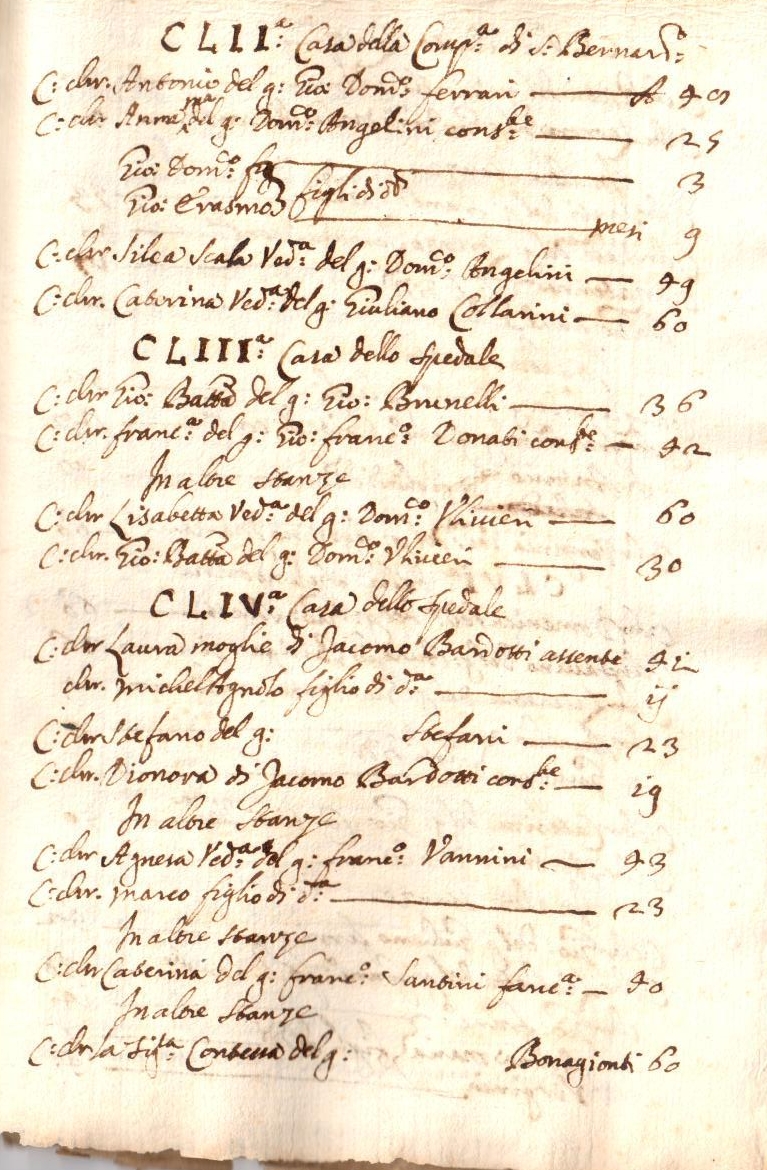 CLII.ª Casa della Comp.ª di S: Bernard.º
C: chr. Antonio del q: Gio: Dom.co ferrari — A 40
C: chr. Anna M.ª del q: Dom.co Angelini cons.te — 25
Gio: Dom.co fig — 3
Gio: Erasmo } figli di d.i — mesi 9
C: chr Silea Scala Ved.ª del q: Dom.co Angelini — 49
C: chr. Caterina Ved.ª del q: Giuliano Collarini — 60
CLIII.ª Casa dello spedale
C: chr Gio: Batta del q: Gio: Brunelli — 36
C: chr. franc.ª del q: Gio: franc.º Donati cons.te — 42
In altre stanze
C: chr Lisabetta Ved.ª del q: Dom.co Vlivieri — 60
C: chr. Gio: Batta del q: Dom.co Vlivieri — 30
CLIV.ª Casa dello spedale
C: chr Laura moglie di Jacomo Bardotti assente 41
chr. Michel Agnolo figlio di d.ª — ij
C: chr Stefano del q: Stefani — 23
C: chr. Dionora di Jacomo Bardotti cons.te — 19
In altre stanze
C: chr Agnesa Ved.ª del q: franc.º Vannini — 43
C: chr. Marco figlio di d.ta — 23
In altre stanze
C: chr Caterina del q: franc.º Santini fanc.ª — 40
In altre stanze
C: chr la Sig.ra Contessa del q: Bonagionti 60